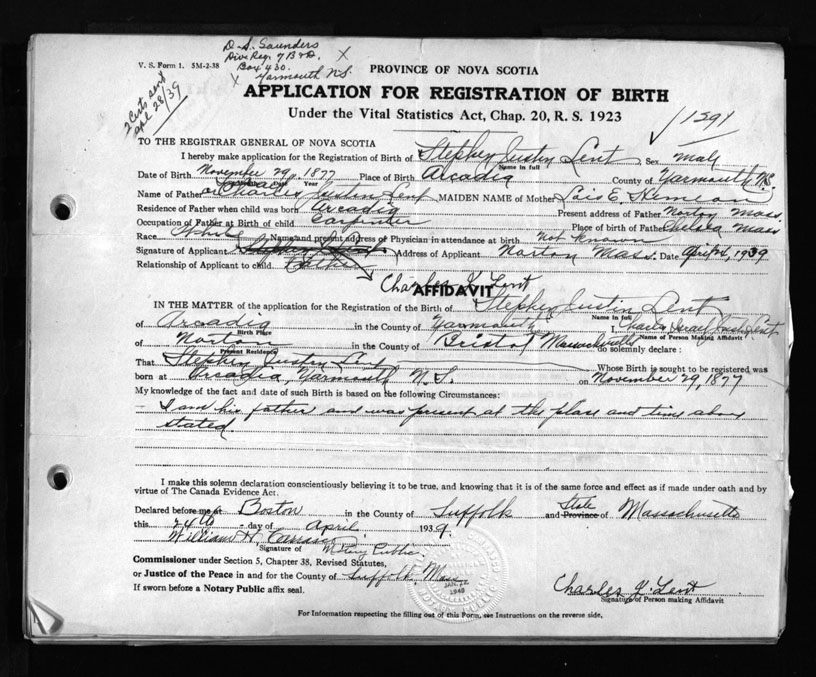 D. S. Saunders
Div. Reg. of B & D. X
V. S. Form 1. 5M-2-38
Box 430.
X Yarmouth N.S.
2 Certs sent
apl 28/39
PROVINCE OF NOVA SCOTIA
APPLICATION FOR REGISTRATION OF BIRTH
Under the Vital Statistics Act, Chap. 20, R. S. 1923
TO THE REGISTRAR GENERAL OF NOVA SCOTIA
I hereby make application for the Registration of Birth of Stephen Justin Lent Sex Male
Name in full
Date of Birth November 29, 1877 Place of Birth Arcadia County of Yarmouth, N.S.
Year
Name of Father Charles Justin Lent MAIDEN NAME of Mother Lois E.
Residence of Father when child was born Arcadia Present address of Father Norton Mass.
Occupation of Father at Birth of child Carpenter Place of birth of Father Chelsea Mass
Race White Name and present address of Physician in attendance at birth not known
Signature of Applicant Stephen J Lent Address of Applicant Norton Mass. Date April 24, 1939
Relationship of Applicant to child Father
Charles J. Lent
AFFIDAVIT
IN THE MATTER of the application for the Registration of the Birth of Stephen Justin Lent
Name in full
of Arcadia in the County of Yarmouth I, Charles Israel Justin Lent
Birth Place
Name of Person Making Affidavit
of Norton in the County of Bristol Massachusetts do solemnly declare :
Present Residence
That Stephen Justin Lent Whose Birth is sought to be registered was
born at Arcadia, Yarmouth N.S. on November 29, 1877
My knowledge of the fact and date of such Birth is based on the following Circumstances:
I am his father and was present at the place and time above
stated.
I make this solemn declaration conscientiously believing it to be true, and knowing that it is of the same force and effect as if made under oath and by
virtue of The Canada Evidence Act.
Declared before me at Boston in the County of Suffolk and Province of State Massachusetts
this 24th day of April 1939
William H.
Signature of Notary Public.
Commissioner under Section 5, Chapter 38, Revised Statutes,
or Justice of the Peace in and for the County of Suffolk, Mass
If sworn before a Notary Public affix seal.
Charles J. Lent
Signature of Person making Affidavit
For Information respecting the filling out of this Form, see Instructions on the reverse side,